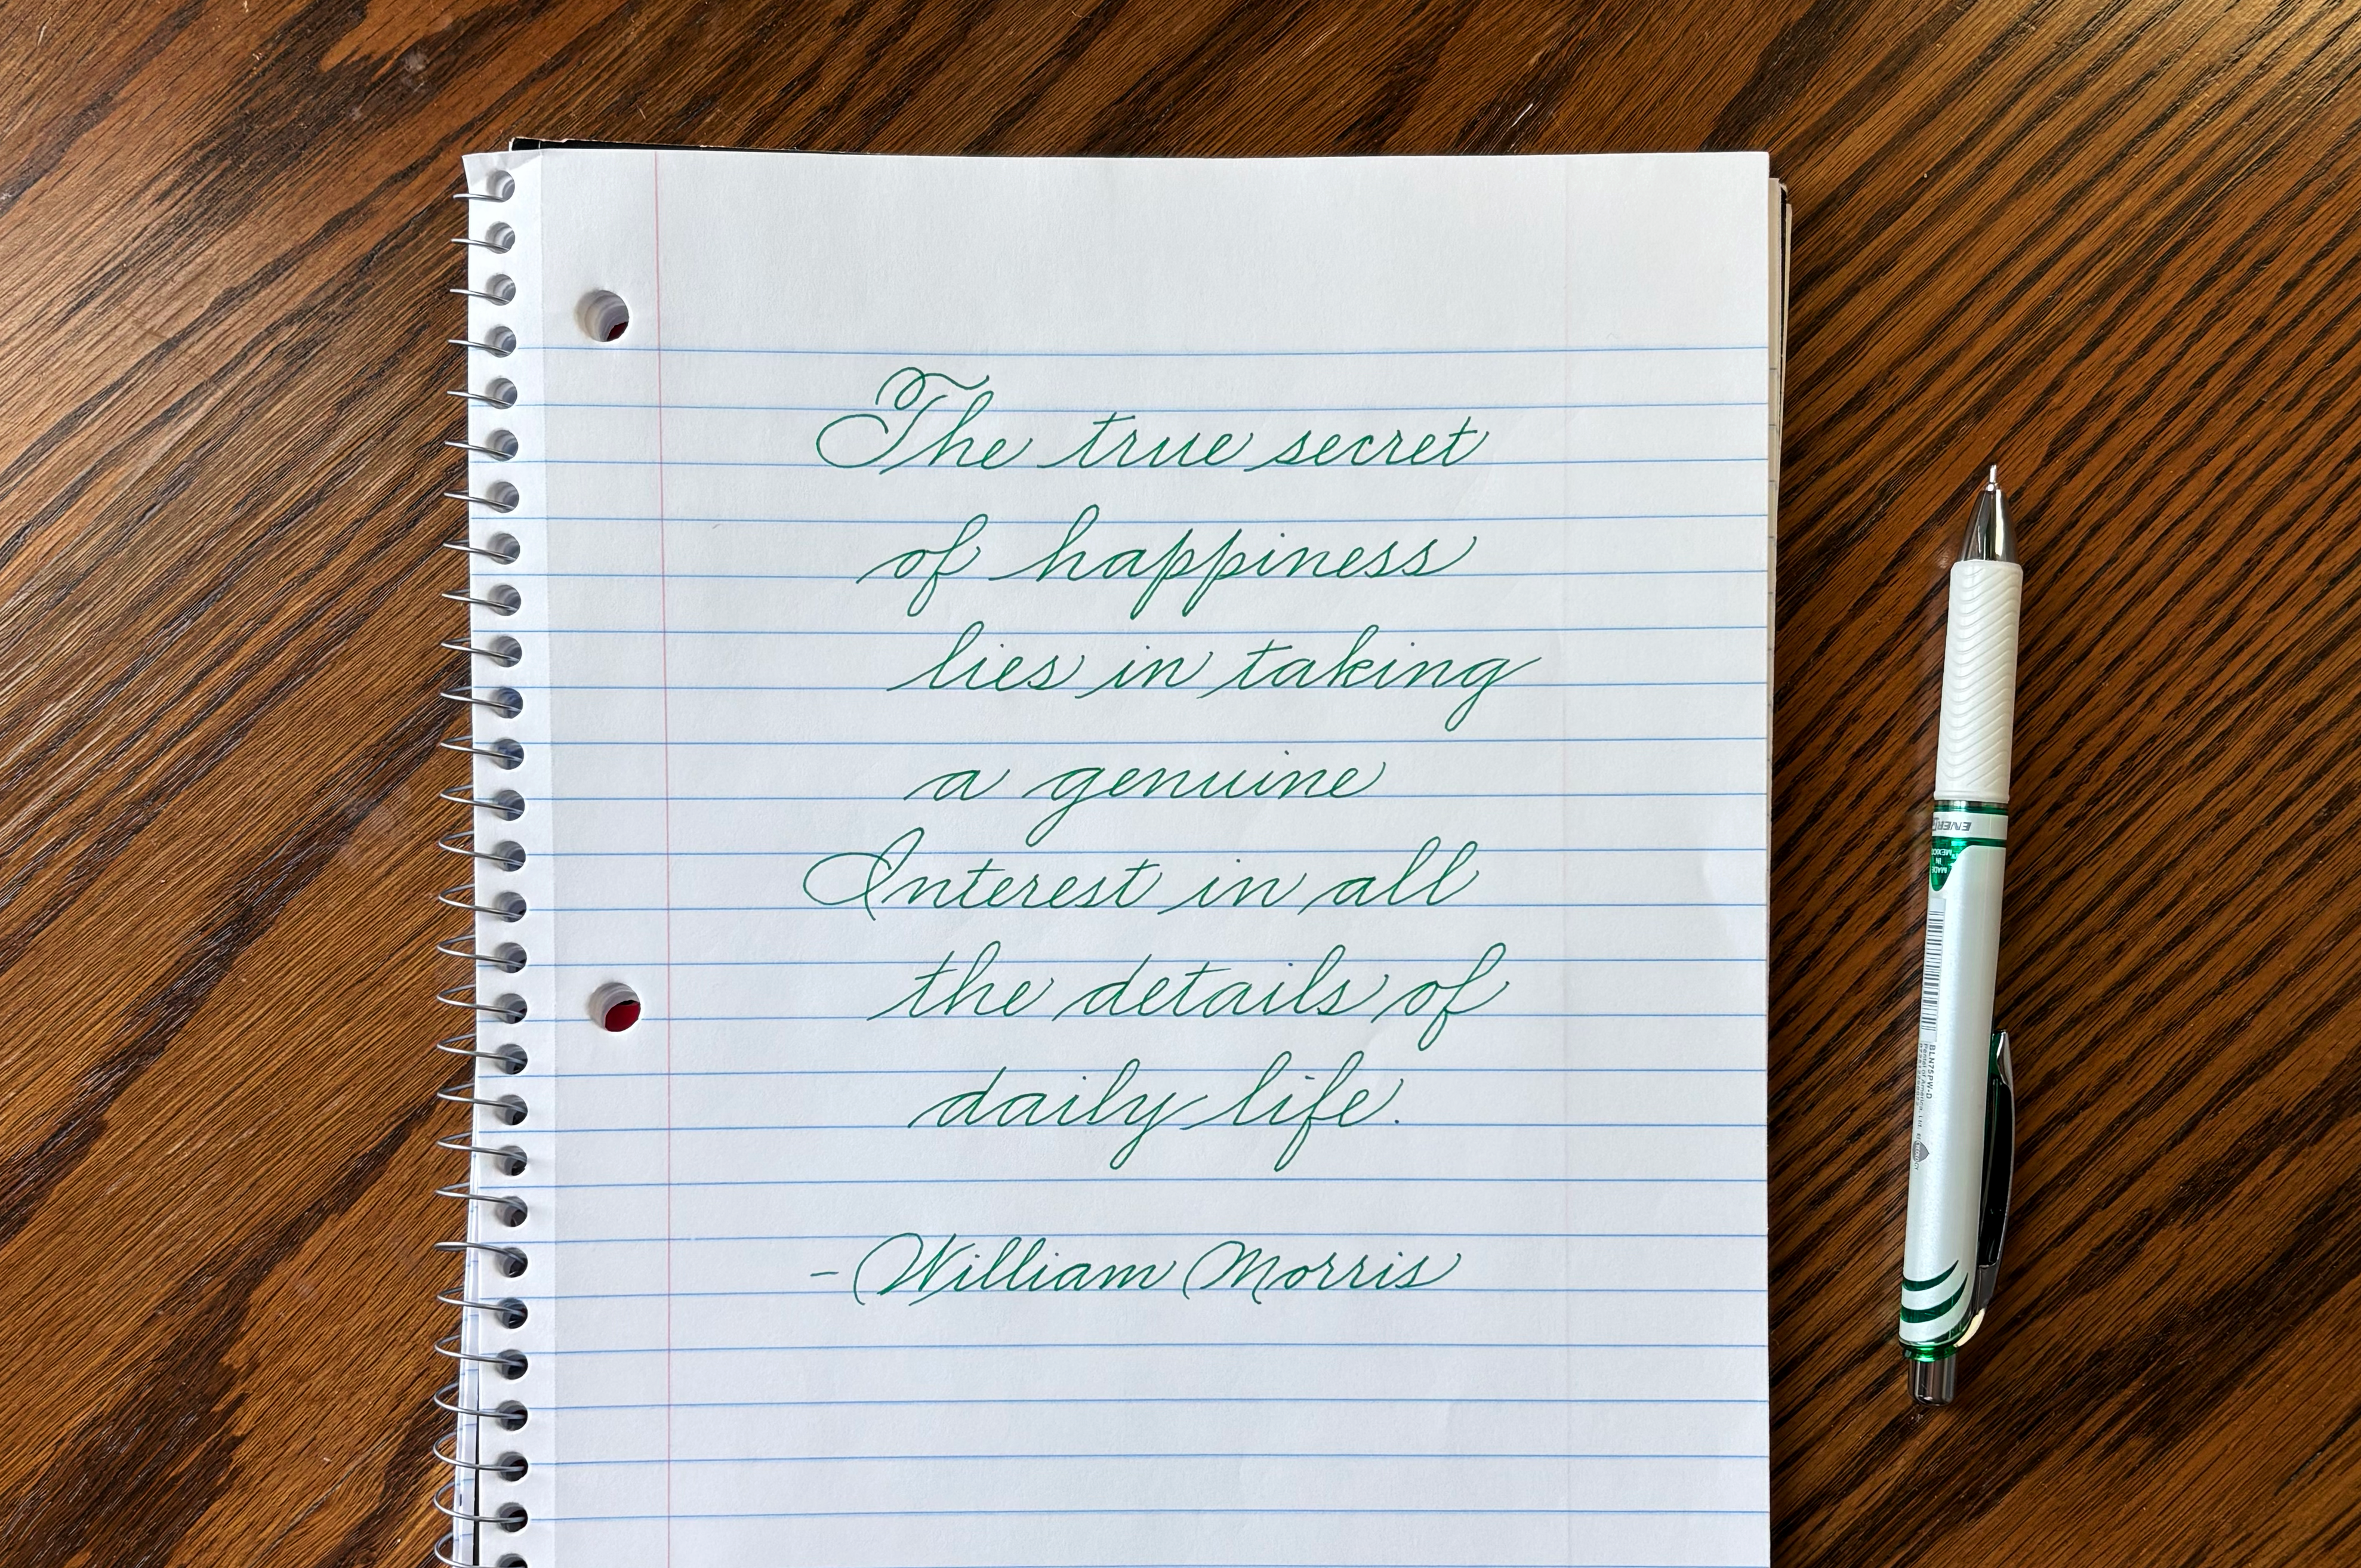 The true secret
of happiness
lies in taking
a genuine
Interest in all
the details of
daily life.
- William Morris
MADE
IN
MEXICO
BLN75PW-D